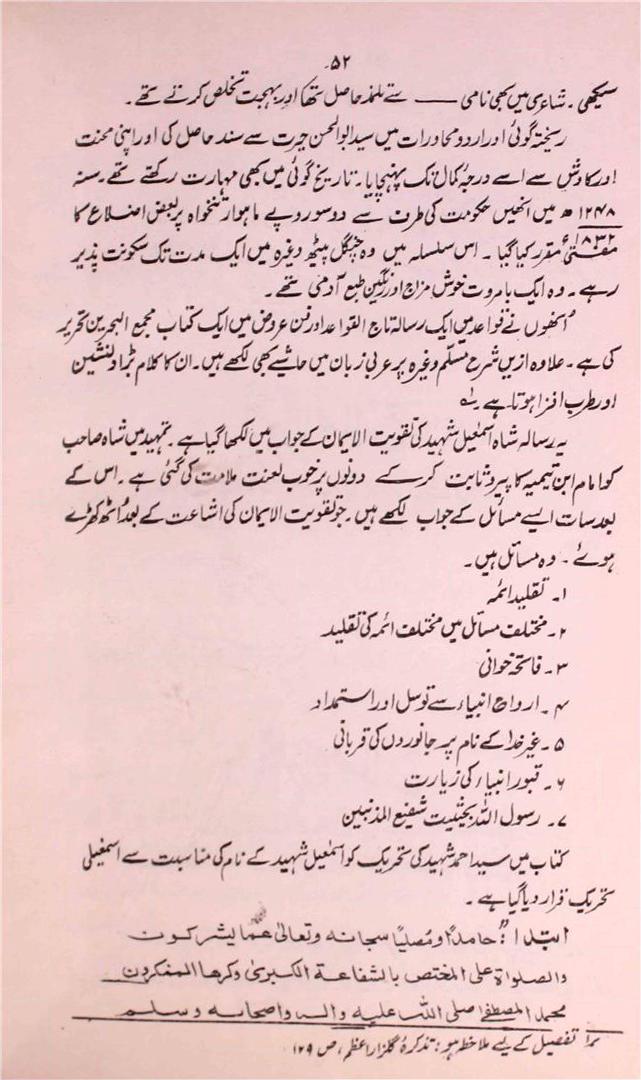 ۵۲
سیکھی۔ شاعری میں بھی نامی —— سے تلمذ حاصل تھا اور بہجت تخلص کرتے تھے۔
ریختہ گوئی اور اردو محاورات میں سید ابوالحسن حیرت سے سند حاصل کی اور اپنی محنت
اور کاوش سے اسے درجۂ کمال تک پہنچایا۔ تاریخ گوئی میں بھی مہارت رکھتے تھے۔ سنہ
۱۲۴۸ھ میں انھیں حکومت کی طرف سے دو سو روپے ماہوار تنخواہ پر بعض اضلاع کا
۱۸۳۲ء
مفتی مقرر کیا گیا۔ اس سلسلہ میں وہ چنگل پیٹھ وغیرہ میں ایک مدت تک سکونت پذیر
رہے۔ وہ ایک با مروت خوش مزاج اور رنگین طبع آدمی تھے۔
اُنھوں نے قواعد میں ایک رسالہ تاج القواعد اور فن عروض میں ایک کتاب مجمع البحرین تحریر
کی ہے۔ علاوہ ازیں شرح مسلم وغیرہ پر عربی زبان میں حاشیے بھی لکھے ہیں۔ ان کا کلام بڑا دلنشین
اور طرب افزا ہوتا ہے۔
یہ رسالہ شاہ اسمٰعیل شہید کی تقویت الایمان کے جواب میں لکھا گیا ہے۔ تمہید میں شاہ صاحب
کو امام ابن تیمیہ کا پیرو ثابت کر کے دونوں پر خوب لعنت ملامت کی گئی ہے۔ اس کے
بعد سات ایسے مسائل کے جواب لکھے ہیں۔ جو تقویت الایمان کی اشاعت کے بعد اُٹھ کھڑے
ہوئے۔ وہ مسائل ہیں۔
۱۔ تقلید ائمہ
۲۔ مختلف مسائل میں مختلف ائمہ کی تقلید
۳۔ فاتحہ خوانی
۴۔ ارواح انبیاء سے توسل اور استمداد
۵۔ غیر خدا کے نام پر جانوردں کی قربانی
۶۔ قبور انبیاء کی زیارت
۷۔ رسول اللہ بحیثیت شفیع المذنبین
کتاب میں سید احمد شہید کی تحریک کو اسمٰعیل شہید کے نام کی مناسبت سے اسمٰعیلی
تحریک قرار دیا گیا ہے۔
ابتدا: "حامداً و مصلیاً سبحانہ وتعالیٰ عما یشرکون
والصلواة علی المختص بالشفاعة الکبریٰ وکرھا المفکردن
محمد المصطفا صلی اللہ علیہ والہ واصحابہ وسلم
تفصیل کے لیے ملاحظہ ہو: تذکرۂ گلزار اعظم، ص ۱۲۹